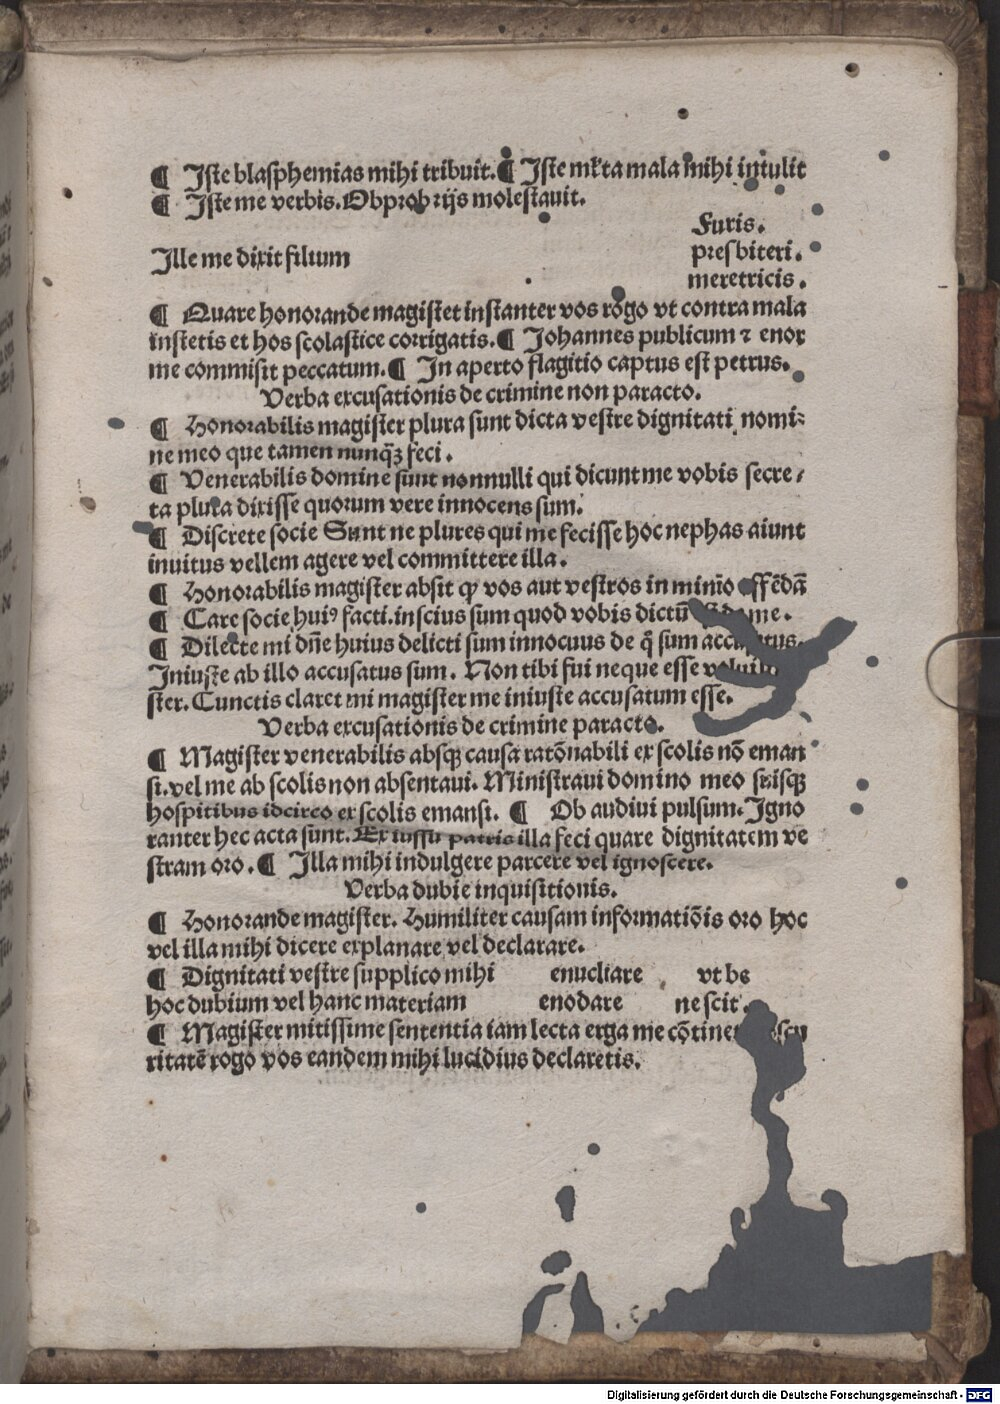 ¶ Iste blasphemias mihi tribuit. ¶ Iste młta mala mihi intulit
¶ Iste me verbis. Obprobrijs molestauit.
Furis.
Ille me dixit filium presbiteri.
meretricis.
¶ Quare honorande magistet instanter vos rogo vt contra mala
instetis et hos scolastice corrigatis. ¶ Johannes publicum ⁊ enor
me commisit peccatum. ¶ In aperto flagitio captus est petrus.
Verba excusationis de crimine non paracto.
¶ Honorabilis magister plura sunt dicta vestre dignitati nomi⸗
ne meo que tamen nunqꝫ feci.
¶ Venerabilis domine sunt nonnulli qui dicunt me vobis secre⸗
ta plura dixisse quorum vere innocens sum.
¶ Discrete socie Sunt ne plures qui me fecisse hoc nephas aiunt
inuitus vellem agere vel committere illa.
¶ Honorabilis magister absit ꝙ vos aut vestros in minīo offēdā
¶ Care socie huiꝰ facti. inscius sum quod vobis dictū de me.
¶ Dilecte mi dn̄e huius delicti sum innocuus de q̄ sum accusatus.
Iniuste ab illo accusatus sum. Non tibi fui neque esse
ster. Cunctis claret mi magister me iniuste accusatum esse.
Verba excusationis de crimine paracto.
¶ Magister venerabilis absqꝫ causa ratōnabili ex scolis nō eman
si. vel me ab scolis non absentaui. Ministraui domino meo suisqꝫ
hospitibus idcirco ex scolis emansi. ¶ Ob audiui pulsum. Igno
ranter hec acta sunt. Ex iussu patris illa feci quare dignitatem ve
stram oro. ¶ Illa mihi indulgere parcere vel ignoscere.
Verba dubie inquisitionis.
¶ Honorande magister. Humiliter causam informatiōis oro hoc
vel illa mihi dicere explanare vel declarare.
¶ Dignitati vestre supplico mihi enucliare vt be
hoc dubium vel hanc materiam enodare ne scit.
¶ Magister mitissime sententia iam lecta erga me cōtinet
ritatē rogo vos eandem mihi lucidius declaretis.
Digitalisierung gefördert durch die Deutsche Forschungsgemeinschaft - DFG